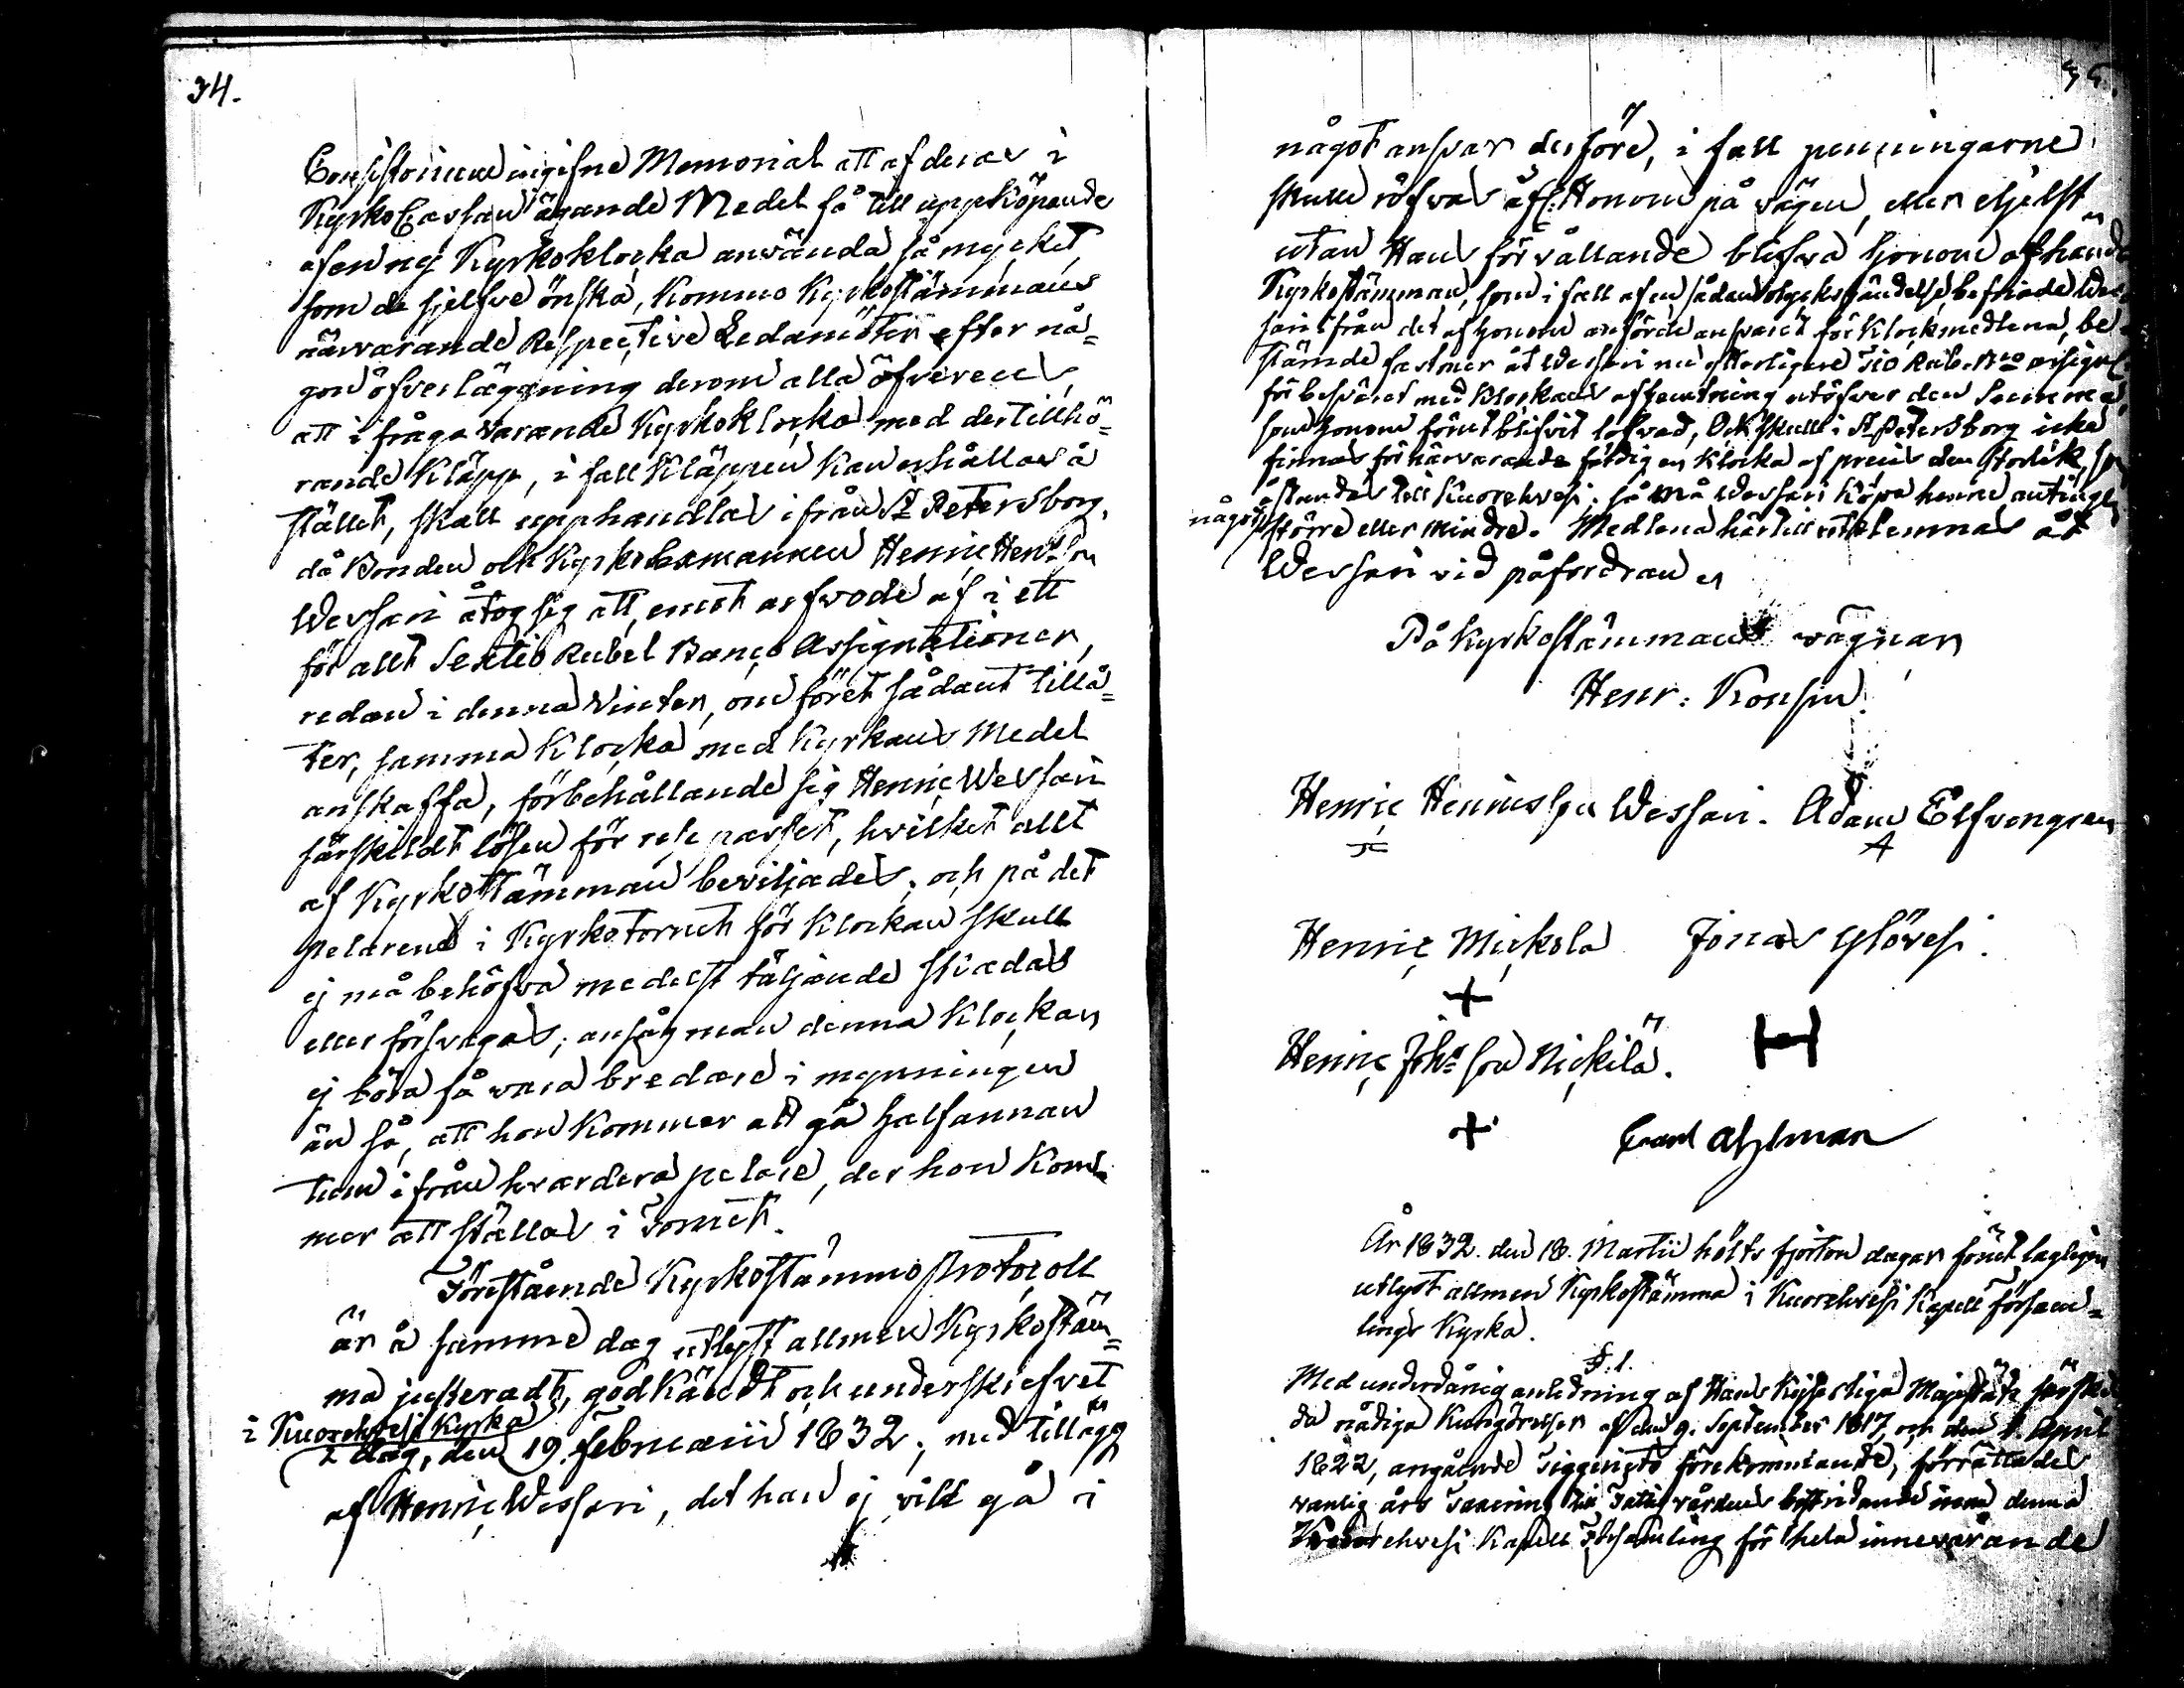 34.
Consistorium ingifne Memorial att af deras i
KyrkoCassan ägande Medel få till uppköpande
af en ny Kyrkoklocka använda så mycket,
som de sjelfve önska, kommo Kyrkostämmans
närvarande Respective Ledamöter efter nå=
gon öfverläggning derom alla öfverens,
att i fråga varande Kyrkoklocka med dertillhö=
rande Kläpp, i fall Kläppen kan erhållas å
stället, skall upphandlas ifrån St Petersborg,
då Bonden och Kyrkovärdmannen Henric Henr:son
Wessari åtog sig att, emot arfvode af i ett
för allt Sextio Rubel Banco Assignationer,
redan i denna Vinter, om föret sådant tillå=
ter, samma Klocka med Kyrkans Medel
anskaffa, förbehållande sig Henric Wessari
särskildt lösen för respasset, hvilket allt
af Kyrkostämman beviljades; och på det
pelarena i Kyrkotornet för Klockan skull
ej må behöfva medelst täljande skadas
eller försvagas, ansåg man denna Klockan
ej böra få vara bredare i mynningen
än så, att hon kommer att gå halfannan
tum ifrån hvardera pelare, der hon kom=
mer att ställas i Tornet.
Förestående Kyrkostämmo Protocoll
är å samme dag utlyst allmän Kyrkostäm=
ma justeradt, godkändt och underskrifvet
i Kuorehvesi Kyrka
i dag, den 19 Februarii 1832; med tillägg
af Henric Wessari, det han ej vill gå i
35.
något ansvar derföre, i fall penningarne
skulle röfvas af Honom på vägen, eller eljest
utan Hans förvållande blifva honom afhände
Kyrkostämman, som i fall af en sådan olycks händelse befriade Wes=
sari från det af honom anförde ansvaret för Klockmedlena, be=
stämde åt Wessari nu ytterligare Tio Rub. Bco assign:
för besväret med Klockans afhemtning utöfver den Summa,
som honom förut blifvit lofvad, Och skulle i St Petersborg icke
finnas för närvarande färdig en Klocka af precis den storlek, som
åstundas till Kuorehvesi, så må Wessari köpa henne antingen
något större eller mindre. Medlena härtill utlemnas åt
Wessari vid påfordran
På Kyrkostämmans vägnar
Henr: Konsin
Henric Henricsson Wessari. Adam Elfvengren
Henric Mickola Jonas Ylövesi.
Henric Joh:son Nickilä.
Carl Ahlman
År 1832. den 18. Martii hölts fjorton dagar förut lagligen
utlyst allmen Kyrkostämma i Kuorehvesi Kapell Försam=
lings Kyrka.
§. 1.
Med underdånig anledning af Hans Kejserliga Majestäts särskil
da nådiga Kungörelser af den 9. September 1817, och den 1. April
1822, angående Tiggeriets förekommande, förrättades
vanlig års Taxering till Fattigvårdens bestridande inom denna
Kuorehvesi Kapell Församling för hela innevarande